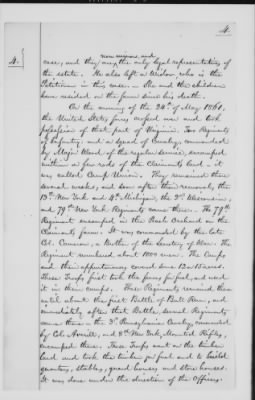 4.
4.
now minors, and
case, and they are the only legal representatives of
the estate. He also left a Widow, who is the
Petitioner in this case. She and the children
have resided on the farm since his death.
On the morning of the 24th of May 1861,
the United States forces crossed over and took
possession of that part of Virginia. Two Regiments
of Infantry, and a squad of Cavalry, commanded
by Major Wood, of the regular service, encamped
within a few rods of the Claimants land - it
was called Camp Union. They remained there
several weeks, and soon after their removal, the
13th New York and 4th Michigan, the 2d Wisconsin
and 79th New York Regiments came there. The 79th
Regiment encamped in the Peach Orchard on the
Claimants farm. It was commanded by the late
Col. Cameron, a Brother of the Secretary of War. The
Regiment numbered about 1000 men. The Camps
and their appurtenances covered some 12 or 15 acres.
These Troops first took the fences for fuel, and used
it in their camps. These Regiments remained there
until about the first Battle of Bull Run, and
immediately after that Battle, several Regiments
came there - the 3d Pennsylvania Cavalry, commanded
by Col. Averill, and 8th New York Mounted Rifles,
encamped there. These Troops cut on the timber
land and took the timber for fuel and to build
quarters, stables, guard houses and store houses.
It was done under the direction of the Officers.